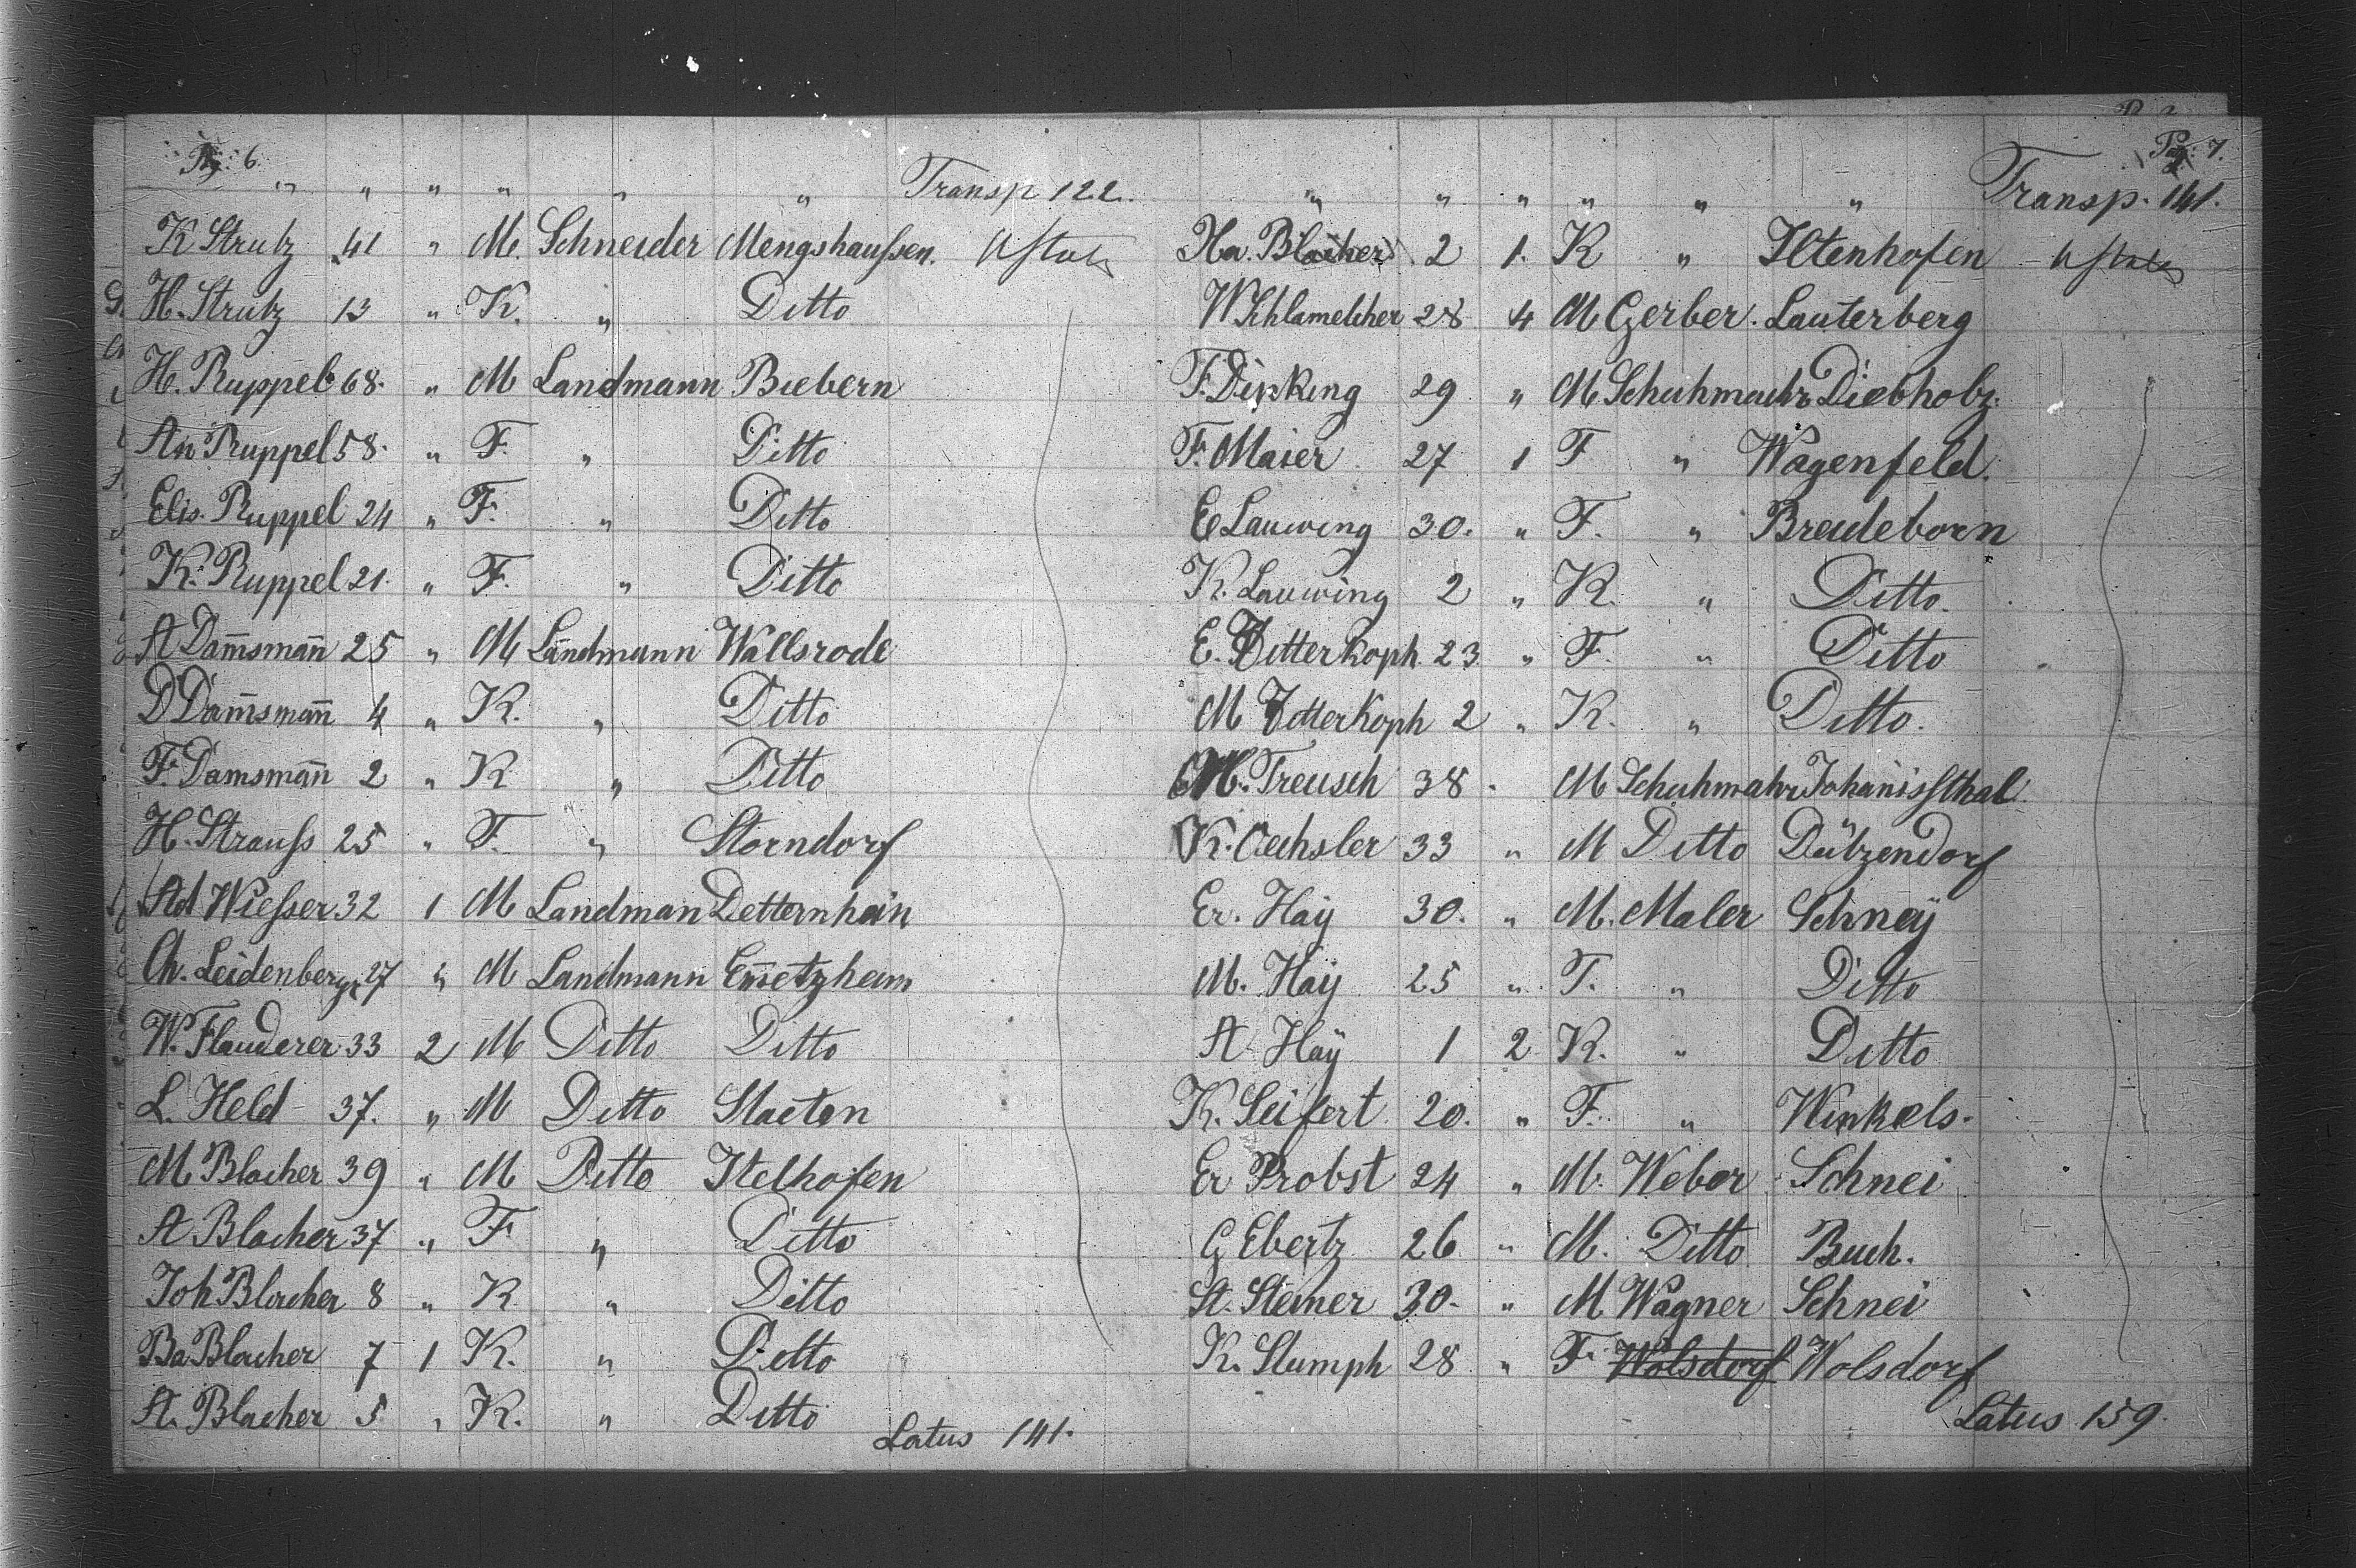 Pag: 6.
" " " " " " Transp 122.
K Strutz 41 " M. Schneider Mengshaussen. U Stats
H. Strutz 13 " K. " Ditto
H. Ruppel 68. " M Landmann Biebern
An Ruppel 58. " F. " Ditto
Elis. Ruppel 24 " F. " Ditto
K. Ruppel 21. " F. " Ditto
A Dam̅sman̅ 25 " M Landmann Wallsrode
D Dam̅sman̅ 4 " K. " Ditto
F. Damsman̅ 2 " K " Ditto
H. Strauss 25 " F. " Storndorf
Ad Wiesser 32 1 M Landman Detternhain
Ch. Leidenberger 27 " M Landmann Em̅etzheim
W. Flauderer 33 2 M Ditto Ditto
L. Held 37. " M Ditto Slaeten
M Blacher 39 " M Ditto Itelhofen
A Blacher 37 " F " Ditto
Joh Blacher 8 " K " Ditto
Ba Blacher 7 1 K. " Ditto
A. Blacher 5 " K. " Ditto
Latus 141.
Pag: 7.
" " " " " " Transp. 141.
Ha. Blacher 2 1. K " Iltenhofen U States
W Schlamelcher 28 4 M Gerber. Lauterberg
F. Dirking 29 " M Schuhmachr Diebholz.
F. Maier 27 1 F " Wagenfeld.
E Lauwing 30. " F. " Bredeborn
K. Lauwing 2 " K. " Ditto.
E. Vetterkoph. 23 " F. " Ditto
M Vetterkoph 2 " K. " Ditto.
M. Treusch 38 " M Schuhmahr Johanissthal.
K. Oechsler 33 " M Ditto Dützendorf
Er. Haÿ 30. " M. Maler Schneÿ
M. Haÿ 25 " F. " Ditto
A Haÿ 1 2 K. " Ditto
K. Seifert 20. " F. " Winkels.
Er Probst 24 " M. Weber Schnei
G Ebertz 26 " M. Ditto Buch.
St. Steiner 30. " M Wagner Schnei
K. Stumph 28 " F Wolsdorf Wolsdorf
Latus 159.